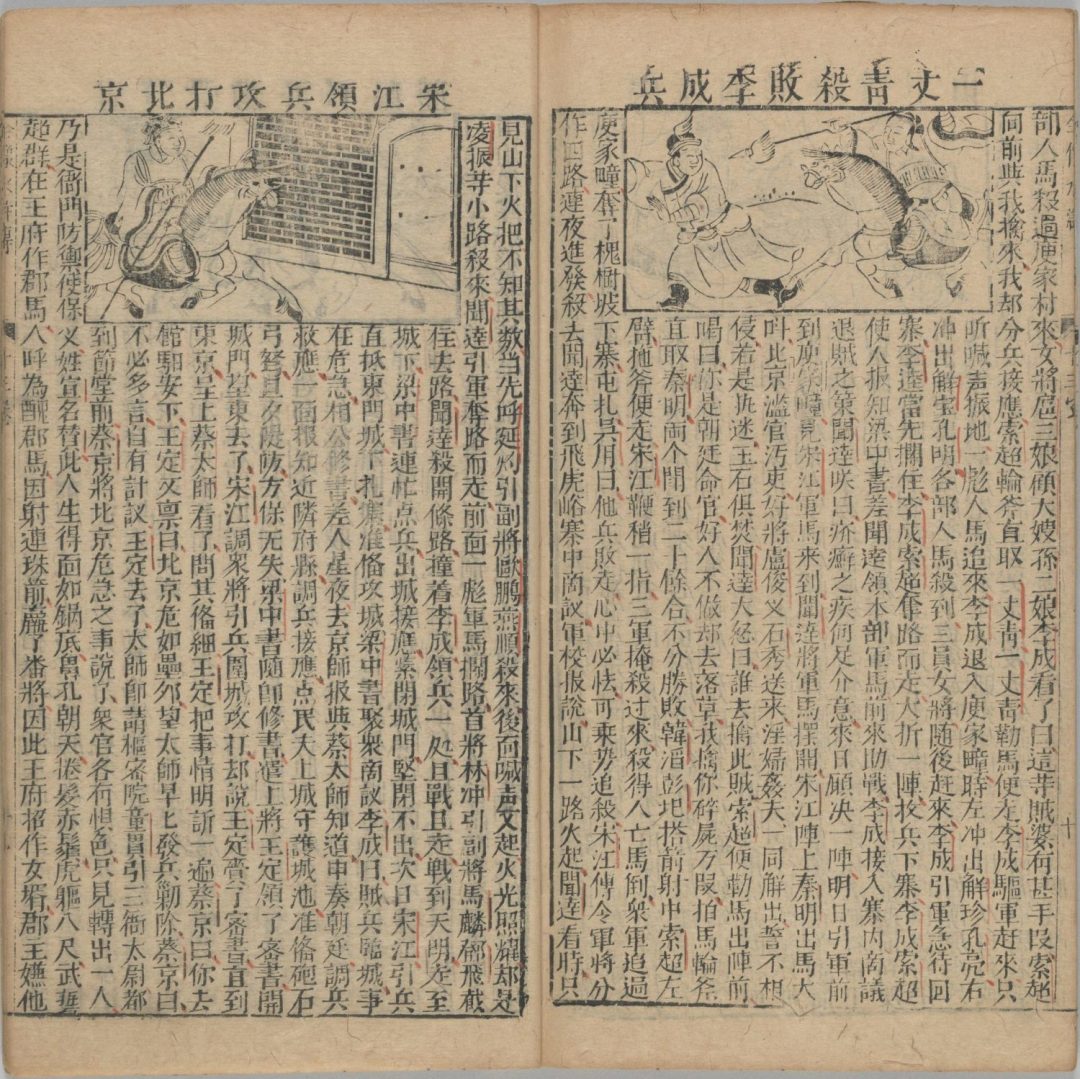 一丈青殺敗李成兵
部人馬殺過庾家村來女將扈三娘顧大嫂孫二娘李成看了曰這等賊婆有甚手段索超
向前與我擒來我却分兵接應索超輪斧直取一丈青一丈青勒馬便走李成驅軍赶來只
听喊声振地一彪人馬追來李成退入庾家疃時左冲出解珍孔亮右
冲出解宝孔明各部人馬殺到三員女將随後赶來李成引軍急待回
寨李逵當先攔住李成索超奪路而走大折一陣投兵下寨李成索超
使人报知梁中書差聞達領本部軍馬前來助戰李成接入寨內商議
退賊之策聞達咲曰疥癬之疾何足介意來日願决一陣明日引軍前
到庾家疃見宋江軍馬來到聞達將軍馬摆開宋江陣上秦明出馬大
呌北京濫官汚吏好將盧俊义石秀送來淫婦姦夫一同解出誓不相
侵若是执迷玉石俱焚聞達大怒曰誰去擒此賊索超便勒馬出陣前
喝曰你是朝廷命官好人不做却去落草我擒你碎屍万段拍馬輪斧
直取秦明両个閗到二十餘合不分勝敗韓滔彭玘搭箭射中索超左
臂拖斧便走宋江鞭稍一指三軍掩殺过來殺得人亡馬倒衆軍追過
庾家疃奪了槐樹坡下寨屯扎吳用曰他兵敗走心中必怯可乘势追殺宋江傳令軍將分
作四路連夜進發殺去聞達奔到飛虎峪寨中商議軍校报説山下一路火起聞達看時只
宋江領兵攻打北京
見山下火把不知其数当先呼延灼引副將歐鵬燕順殺來後面喊声又起火光照耀却是
凌振等小路殺來聞達引軍奪路而走前面一彪軍馬攔路首將林冲引副將馬麟鄧飛截
住去路聞達殺開條路撞着李成領兵一处且戰且走戰到天明走至
城下梁中書連忙点兵出城接應緊閉城門堅閉不出次日宋江引兵
直抵東門城下扎寨准俻攻城梁中書聚衆商议李成曰賊兵臨城事
在危急相公修書差人星夜去京師报與蔡太師知道申奏朝廷調兵
救應一面报知近隣府縣調兵接應点民夫上城守護城池准俻砲石
弓弩且夕隄防方保无失梁中書随即修書遣上將王定領了密書開
城門望東去了宋江調衆將引兵圍城攻打却說王定賫了密書直到
東京呈上蔡太師看了問其俻細王定把事情明訴一遍蔡京曰你去
舘駅安下王定又禀曰北京危如壘卵望太師早七發兵勦除蔡京曰
不必多言自有計议王定去了太師即請樞密院童貫引三衙太尉都
到節堂前蔡京將北京危急之事說了衆官各有惧色只見轉出一人
乃是衙門防禦使保义姓宣名賛此人生得面如鍋底鼻孔朝天捲髮赤鬚虎軀八尺武藝
超群在王府作郡馬人呼為醜郡馬因射連珠前贏了番將因此王府招作女壻郡王嫌他